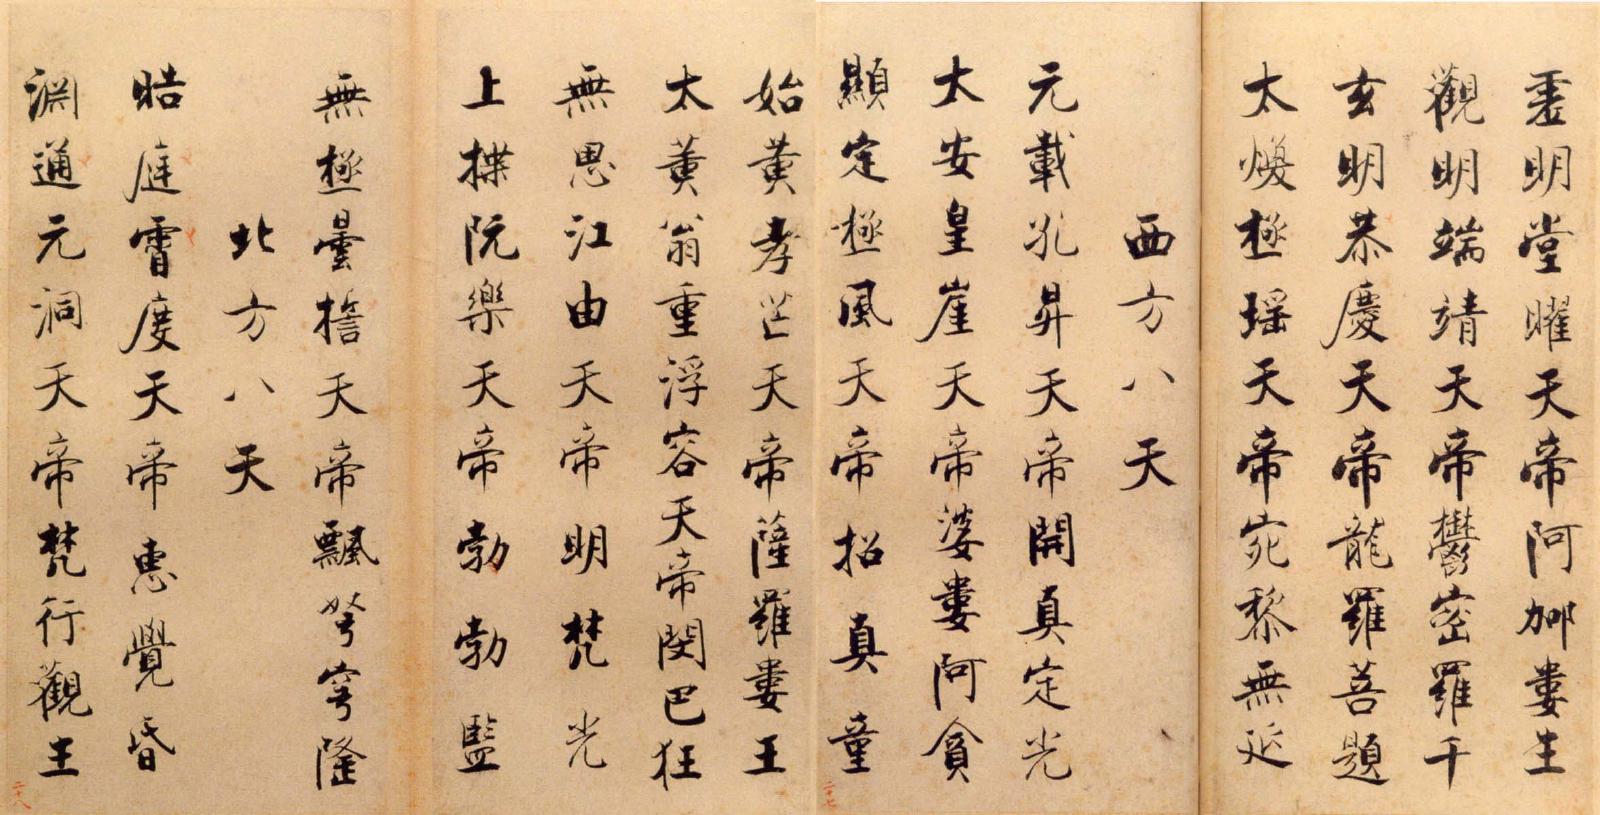 虛明堂曜天帝阿那婁生
觀明端靖天帝鬱密羅千
玄明恭慶天帝龍羅菩題
太煥極瑤天帝宛黎無延
西方八天
元載孔昇天帝開真定光
太安皇崖天帝婆婁阿貪
顯定極風天帝招真童
二十七
始黃孝芒天帝薩羅婁王
太黃翁重浮容天帝閔巴狂
無思江由天帝明梵光
上揲阮樂天帝勃勃監
無極曇擔天帝飄弩穹隆
北方八天
晧庭霄度天帝惠覺昏
淵通元洞天帝梵行觀生
二十八